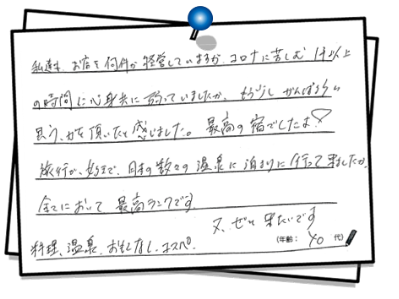 私達も、お店を何件か経営していますが、コロナに苦しむ1年以上
の時間に心身共に弱っていましたが、もう少しがんばろうと
思う力を頂いたと感じました。最高の宿でしたよ♡
旅行が好きで、日本の数々の温泉に泊まりに行って来ましたが
全てにおいて最高ランクです
又、ぜひ来たいです
料理、温泉、おもてなし、コスパ。
(年齢: 40 代)